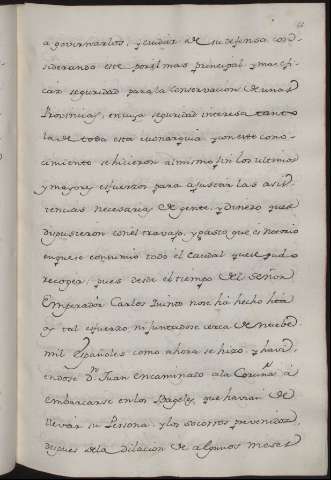 a governarlos, y cuidar de su defensa con
siderando este por el mas principal y mas efi
caz seguridad para la conservacion de unas
Provincias, en cuya seguridad interesa tanto
la de toda esta monarquia y con este cono-
cimiento se hicieron al mismo fin los ultimos
y mayores esfuerzos para ajustar las asis
tencias necesarias de gente, y dinero que se
dispusieron con el travajo, y gasto, que es notorio
en que se consumio todo el caudal que se pudo
recoger, pues desde el tiempo del Señor
Emperador Carlos Quinto no se ha hecho hasta
oy tal esfuerzo, ni juntadose cerca de nuebe
mil Españoles como ahora se hizo y havi
endose Dn. Juan encaminado a la Coruña á
embarcarse en los Bageles, que havian de
llevar su Persona, y los socorros prevenidos,
despues de la dilacion de algunos meses